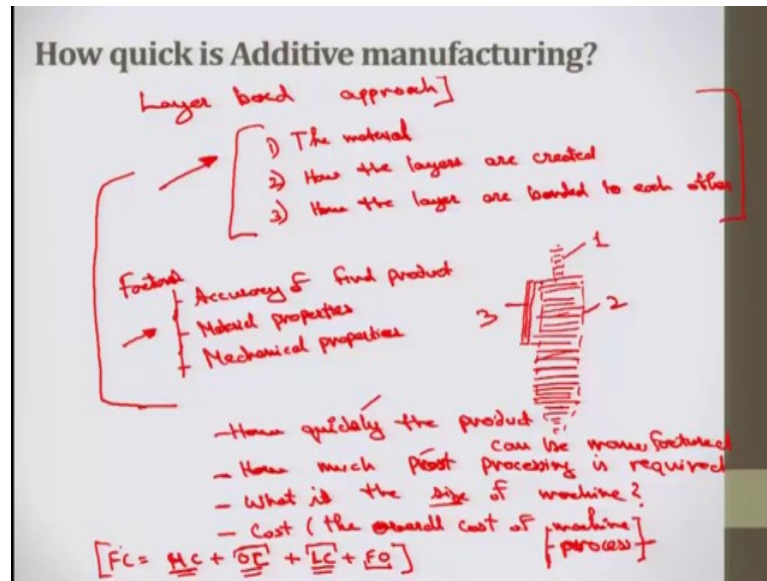 How quick is Additive manufacturing?
Layer based approach]
1) The material
2) How the layers are created
3) How the layer are bonded to each other
Factors
Accuracy of final product
Material properties
Mechanical properties
1
2
3
- How quickly the product
can be manufactured
- How much post processing is required
- What is the size of machine?
- Cost (the overall cost of machine
process
[FC = MC + OC + LC + FO]